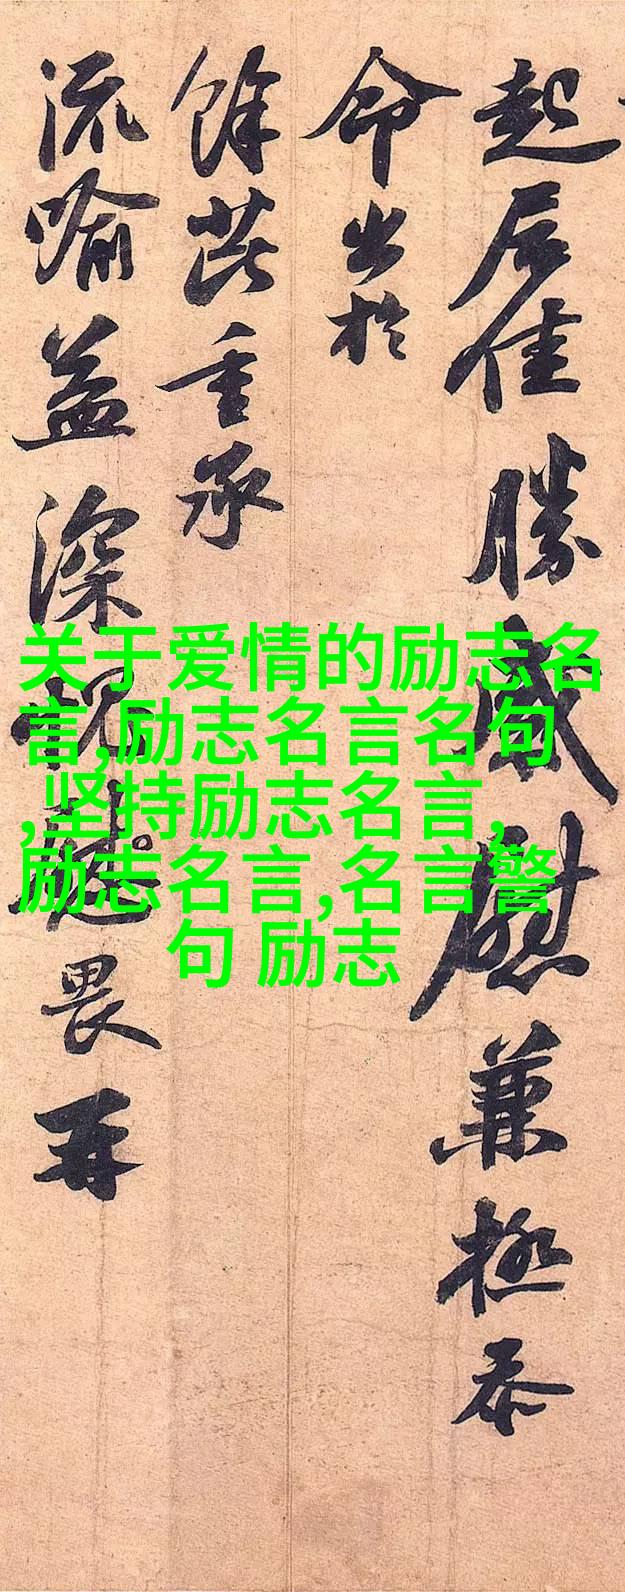 起居佳勝感慰兼極忝
命出於
餘芘重承
流喻益深愧畏再
关于爱情的励志名
言,励志名言名句
,坚持励志名言,
励志名言,名言警
句 励志